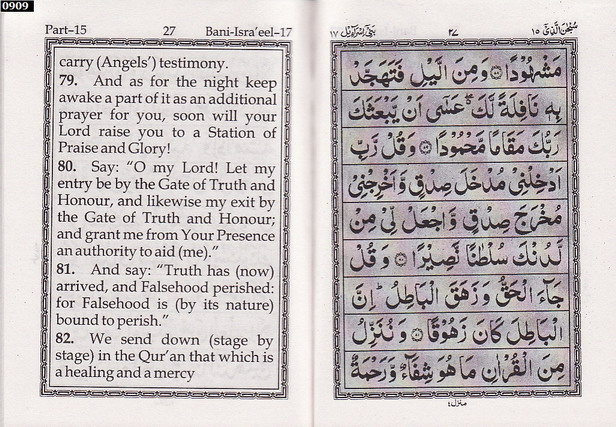 0909
Part–15 27 Bani-Isra’eel-17
carry (Angels’) testimony.
79. And as for the night keep
awake a part of it as an additional
prayer for you, soon will your
Lord raise you to a Station of
Praise and Glory!
80. Say: “O my Lord! Let my
entry be by the Gate of Truth and
Honour, and likewise my exit by
the Gate of Truth and Honour;
and grant me from Your Presence
an authority to aid (me).”
81. And say: “Truth has (now)
arrived, and Falsehood perished:
for Falsehood is (by its nature)
bound to perish.”
82. We send down (stage by
stage) in the Qur’an that which is
a healing and a mercy
سُبْحٰنَ الَّذِىْ ١٥ ٢٧ بَنِىْ اِسْرَآءِيْل ١٧
مَشْهُوْدًا ۝٧٨ وَمِنَ الَّيْلِ فَتَهَجَّدْ
بِهٖ نَافِلَةً لَّكَ ۖ عَسٰٓى اَنْ يَّبْعَثَكَ
رَبُّكَ مَقَامًا مَّحْمُوْدًا ۝٧٩ وَقُلْ رَّبِّ
اَدْخِلْنِىْ مُدْخَلَ صِدْقٍ وَّاَخْرِجْنِىْ
مُخْرَجَ صِدْقٍ وَّاجْعَلْ لِّىْ مِنْ
لَّدُنْكَ سُلْطٰنًا نَّصِيْرًا ۝٨٠ وَقُلْ
جَآءَ الْحَقُّ وَزَهَقَ الْبَاطِلُ ؕ اِنَّ
الْبَاطِلَ كَانَ زَهُوْقًا ۝٨١ وَنُنَزِّلُ
مِنَ الْقُرْاٰنِ مَا هُوَ شِفَآءٌ وَّرَحْمَةٌ
منزل٤